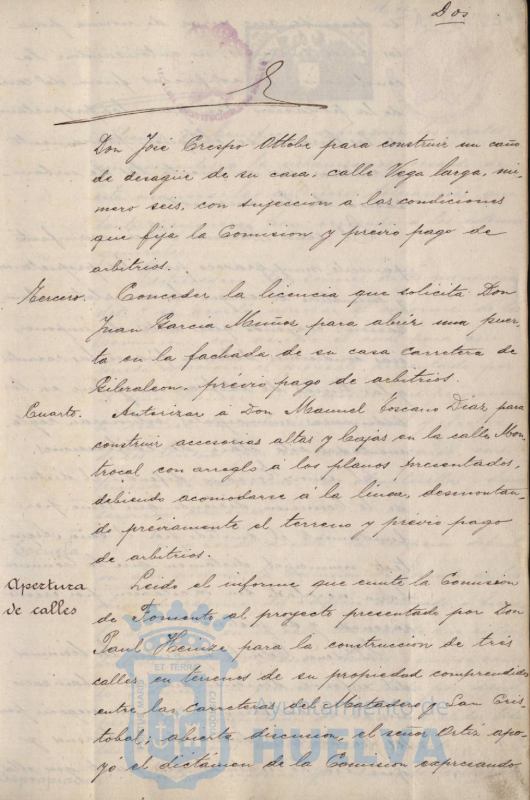 Dos
Don José Crespo Ottobe para construir un caño
de desagüe de su casa, calle Vega larga, nú-
mero seis, con sujeccion á las condiciones
que fija la Comision y prévio pago de
arbitrios.
Tercero. Conceder la licencia que solicita Don
Juan Garcia Muñoz para abrir una puer-
ta en la fachada de su casa carretera de
Gibraleon, prévio pago de arbitrios.
Cuarto. Autorizar á Don Manuel Toscano Diaz para
construir accesorias altas y bajas en la calle Mon-
trocal con arreglo á los planos presentados,
debiendo acomodarse á la línea, desmontan-
do préviamente el terreno y prévio pago
de arbitrios.
Apertura
de calles
Leido el informe que emite la Comision
de Fomento al proyecto presentado por Don
Paul para la construccion de tres
calles en terrenos de su propiedad comprendidos
entre las carreteras del Matadero y San Cris-
tobal; abierta discusion, el señor Ortiz apo-
yó el dictámen de la Comision expresando
Ayuntamiento de
HUELVA